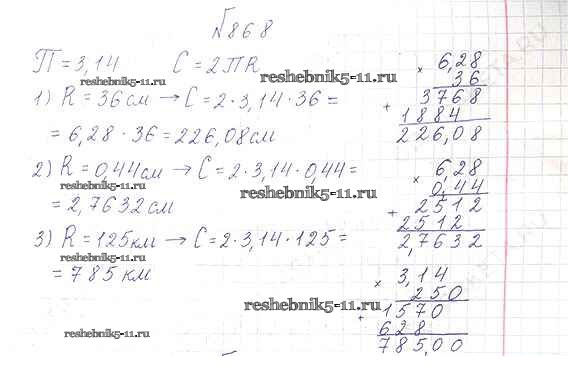 √868
П = 3,14 C = 2ПR
reshebnik5-11.ru
reshebnik5-11.ru
1) R = 36 см → C = 2 · 3,14 · 36 =
= 6,28 · 36 = 226,08 см
2) R = 0,44 см → C = 2 · 3,14 · 0,44 =
reshebnik5-11.ru
reshebnik5-11.ru
= 2,7632 см
3) R = 125 км → C = 2 · 3,14 · 125 =
reshebnik5-11.ru
= 785 км
reshebnik5-11.ru
reshebnik5-11.ru
× 6,28
36
+ 3768
1884
226,08
× 6,28
0,44
+ 2512
2512
2,7632
× 3,14
250
+ 1570
628
785,00